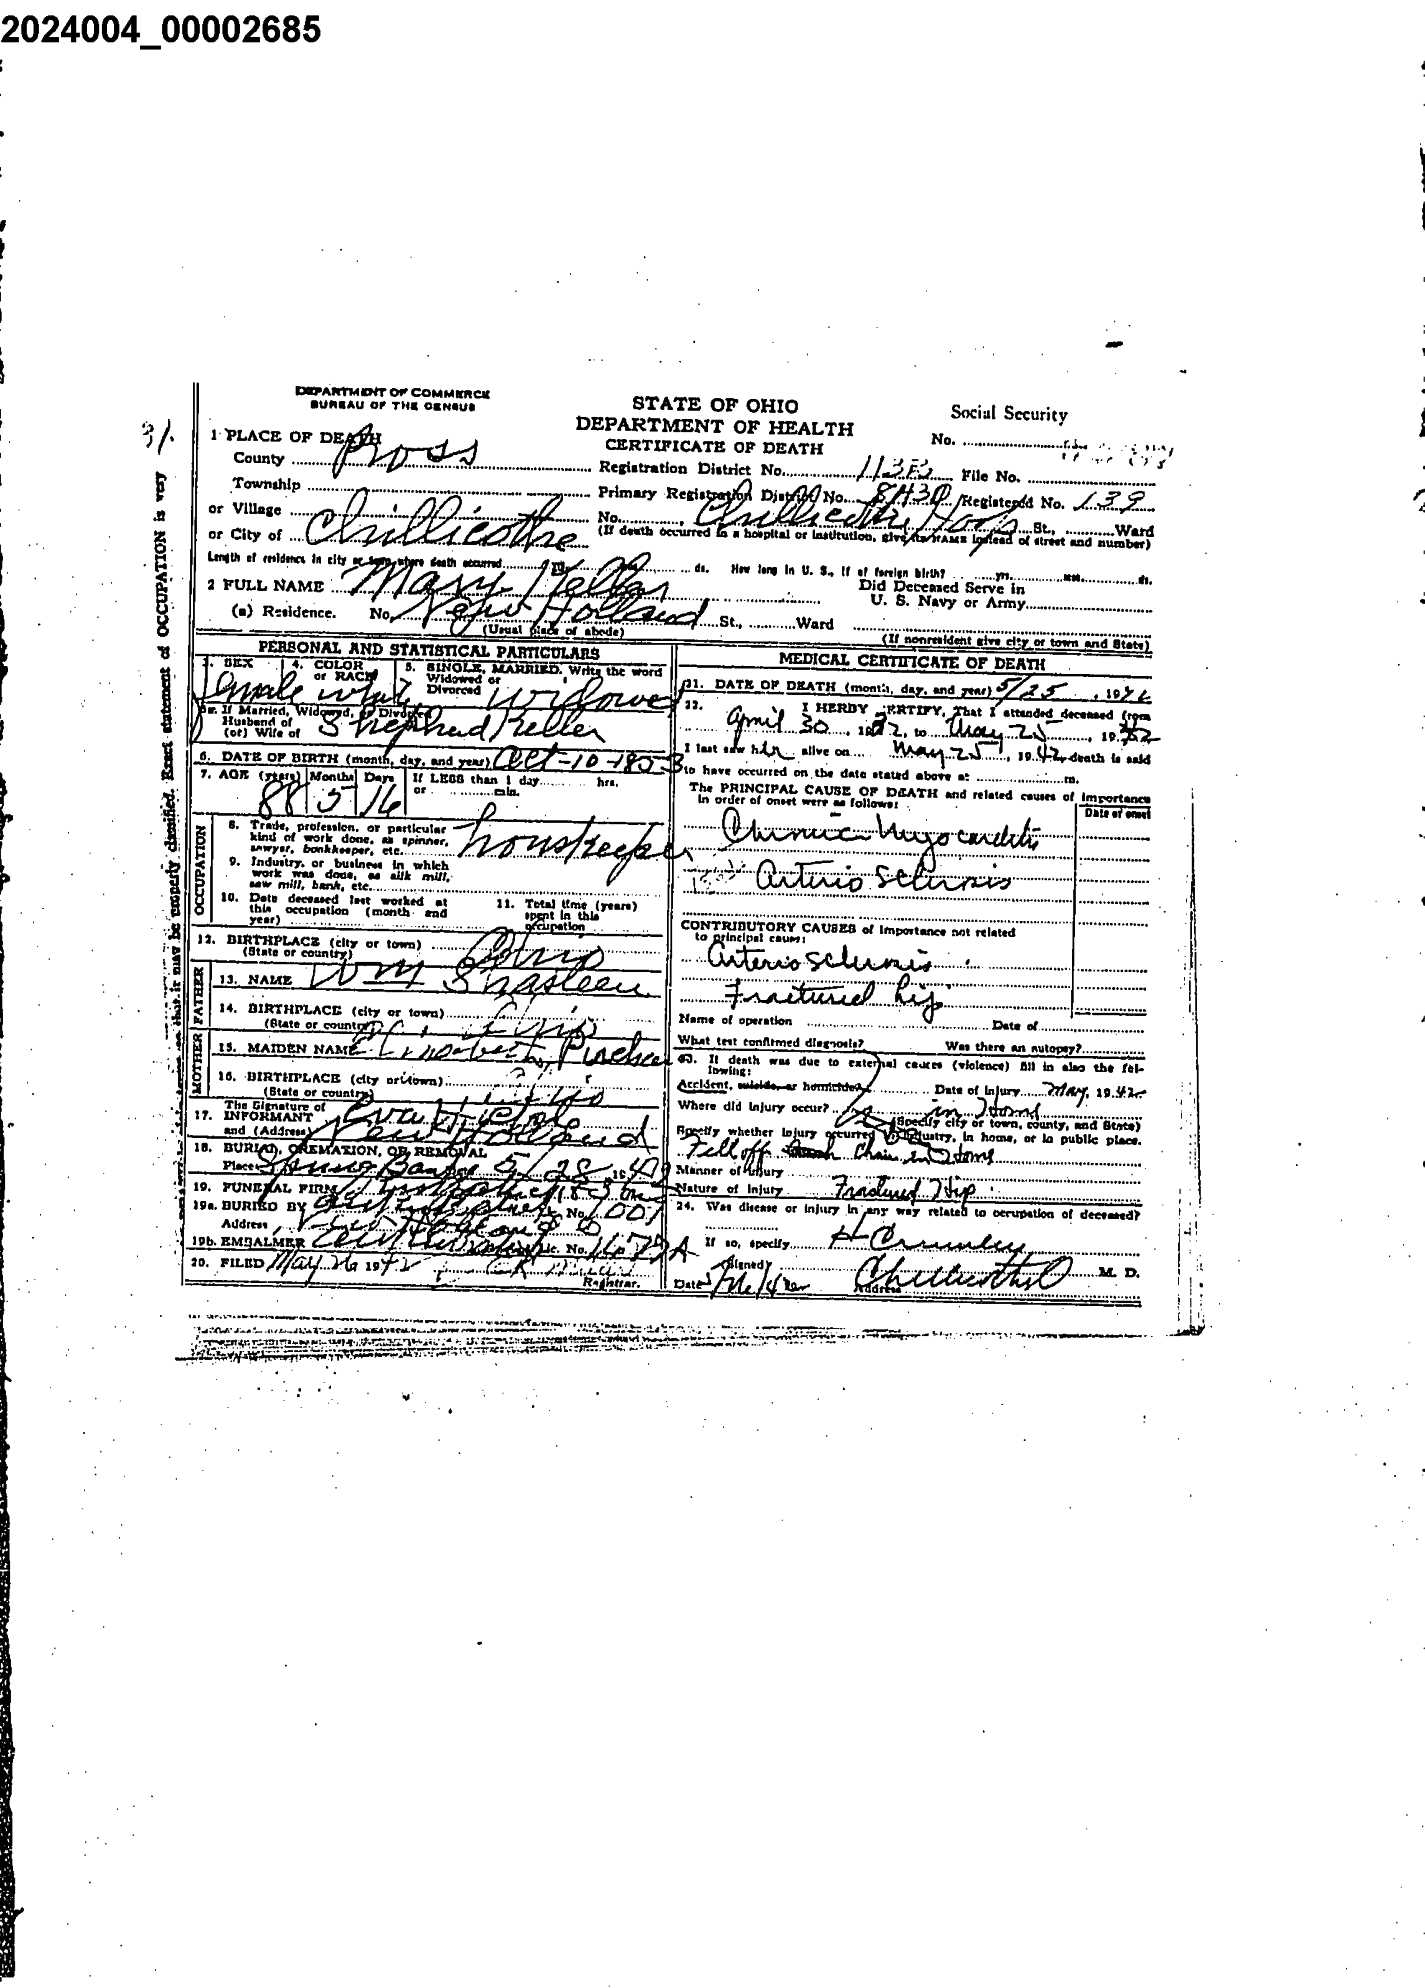 2024004_00002685
DEPARTMENT OF COMMERCE
BUREAU OF THE CENSUS
STATE OF OHIO
DEPARTMENT OF HEALTH
CERTIFICATE OF DEATH
Social Security
No.
1 PLACE OF DEATH
County Ross
Registration District No. 113B File No.
Township
Primary Registration District No. 8430 Registered No. 139
or Village
or City of Chillicothe
No. Chillicothe Hos St., Ward
(If death occurred in a hospital or institution, give its NAME instead of street and number)
Length of residence in city or town where death occurred ds. How long in U. S., if of foreign birth? yrs. mos. ds.
2 FULL NAME Mary Keller
Did Deceased Serve in
U. S. Navy or Army
(a) Residence. No. New Holland St., Ward
(Usual place of abode)
(If nonresident give city or town and State)
PERSONAL AND STATISTICAL PARTICULARS
3. SEX 4. COLOR or RACE 5. SINGLE, MARRIED, Write the word
Widowed or
Divorced
Female White Widowed
5a. If Married, Widowed, or Divorced
Husband of
(or) Wife of Shepherd Keller
6. DATE OF BIRTH (month, day, and year) Oct-10-1853
7. AGE (years) Months Days If LESS than 1 day hrs.
or min.
88 5 16
OCCUPATION
8. Trade, profession, or particular
kind of work done, as spinner,
sawyer, bookkeeper, etc.
houskeeper
9. Industry, or business in which
work was done, as silk mill,
saw mill, bank, etc.
10. Date deceased last worked at
this occupation (month and
year)
11. Total time (years)
spent in this
occupation
12. BIRTHPLACE (city or town)
(State or country) Ohio
FATHER
13. NAME Wm
14. BIRTHPLACE (city or town)
(State or country) Ohio
MOTHER
15. MAIDEN NAME
16. BIRTHPLACE (city or town)
(State or country)
17. The Signature of
INFORMANT Eva
and (Address) New Holland
18. BURIAL, CREMATION, OR REMOVAL
Place 5/28 19
19. FUNERAL FIRM
19a. BURIED BY No.
Address New Holland O
19b. EMBALMER Lic. No. A
20. FILED May 26 1942
Registrar.
MEDICAL CERTIFICATE OF DEATH
21. DATE OF DEATH (month, day, and year) 5/25, 1942
22. I HERBY CERTIFY, That I attended deceased from
April 30, 1942, to May 25, 1942
I last saw her alive on May 25, 1942, death is said
to have occurred on the date stated above at m.
The PRINCIPAL CAUSE OF DEATH and related causes of importance
in order of onset were as follows:
Date of onset
Chronic Myocarditis
Arterio Sclerosis
CONTRIBUTORY CAUSES of importance not related
to principal cause:
Arterio Sclerosis
Fractured hip
Name of operation Date of
What test confirmed diagnosis? Was there an autopsy?
23. If death was due to external causes (violence) fill in also the fol-
lowing:
Accident, suicide, or homicide? Date of injury May, 1942
Where did injury occur? in Home
(Specify city or town, county, and State)
Specify whether injury occurred in industry, in home, or in public place.
Fell off Chair in Home
Manner of injury
Nature of Injury Fractured Hip
24. Was disease or injury in any way related to occupation of deceased?
If so, specify
(Signed) H Crumley M. D.
Date Address Chillicothe O
Exact statement of OCCUPATION is very
so that it may be properly classified.